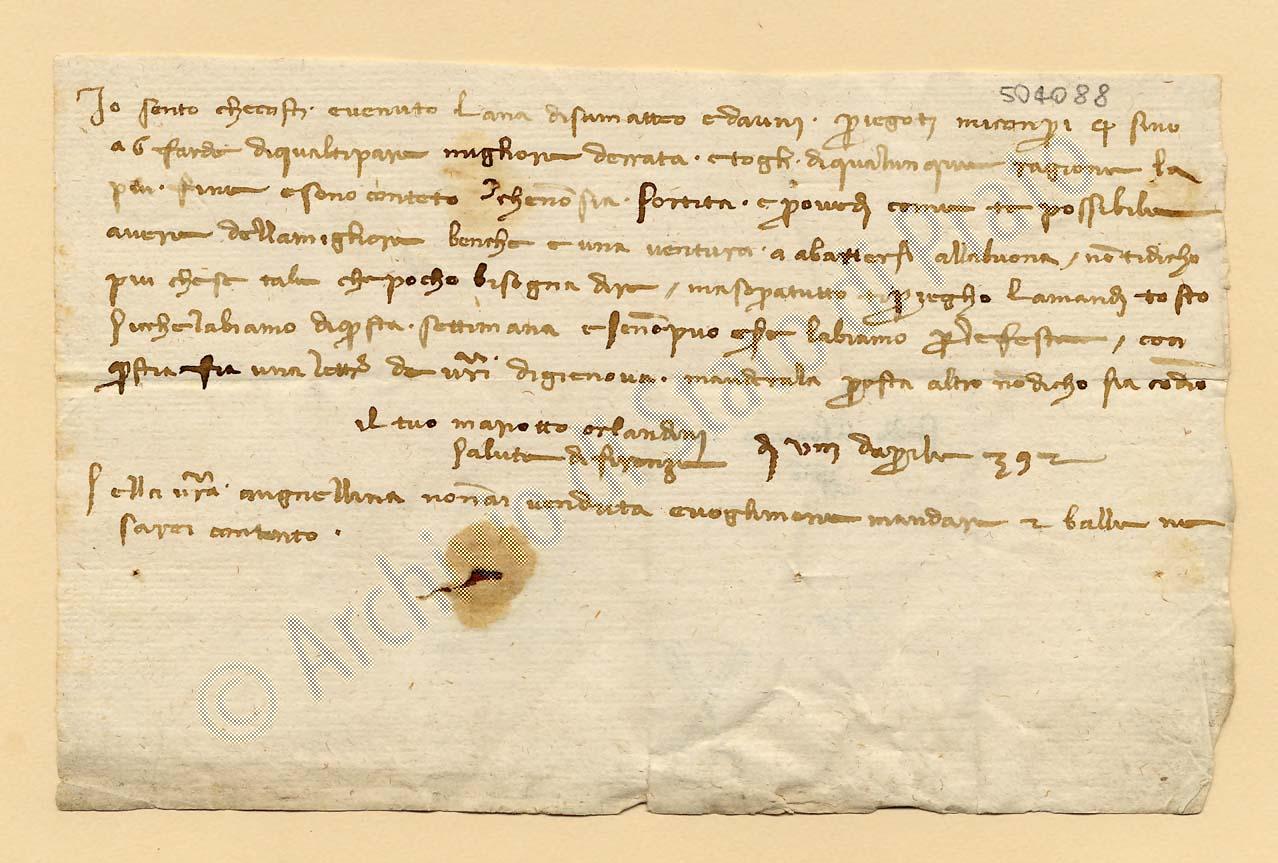 504088
Io sento che costi · e venuto lana di samatteo e davini · priegoti mi conpi sino
a 6 farde di qualti pare migliore derrata · e togli · di qualunque ragione la
piu · fine e sono contento che non sia · sortita · e provedi come te possibile
avere della migliore benche e una ventura · a abattersi alla buona / no ti dicho
piu che se tale che pocho bisogna dire / ma sopratutto ti priegho la mandi tosto
siche labiamo di questa · settimana e se no puo essere labiamo per le feste / con
questa fia una lettera de vostri di gienova · manderala presta altro no dicho sia co dio
il tuo mariotto orlandini
salute di firenze di VIII daprile 392
Se lla vostra · angniellina non ai venduta e voglimene mandare 2 balle ne
sarei contento ·
© Archivio di Stato di Prato